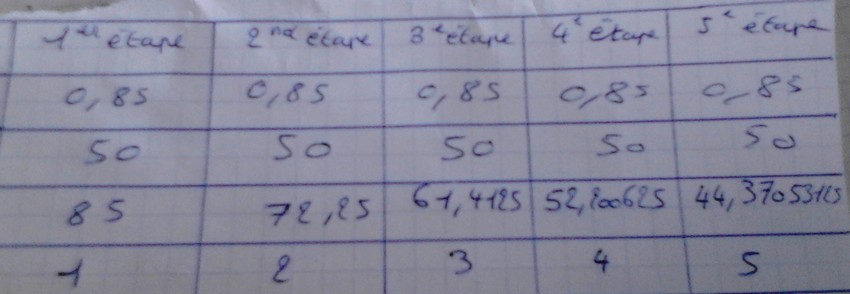 1ère étape 2nd étape 3e étape 4e étape 5e étape
0,85 0,85 0,85 0,85 0,85
50 50 50 50 50
85 72,25 61,4125 52,200625 44,37053125
1 2 3 4 5